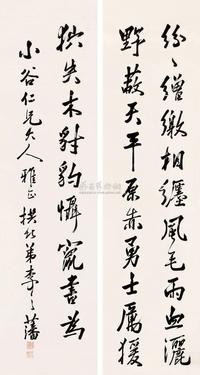 紛〻繒繳相纏風毛雨血灑
野蔽天平原赤勇士厲猨
狖失木豺豹懾竄書為
小谷仁兄大人雅正 弟李之藩